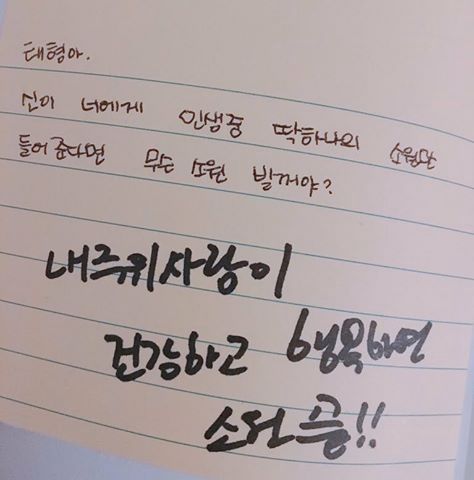 태형아.
신이 너에게 인생중 딱하나의 소원만
들어준다면 무슨 소원 빌꺼야?
내주위사람이
건강하고 행복하면
소원 끝!!